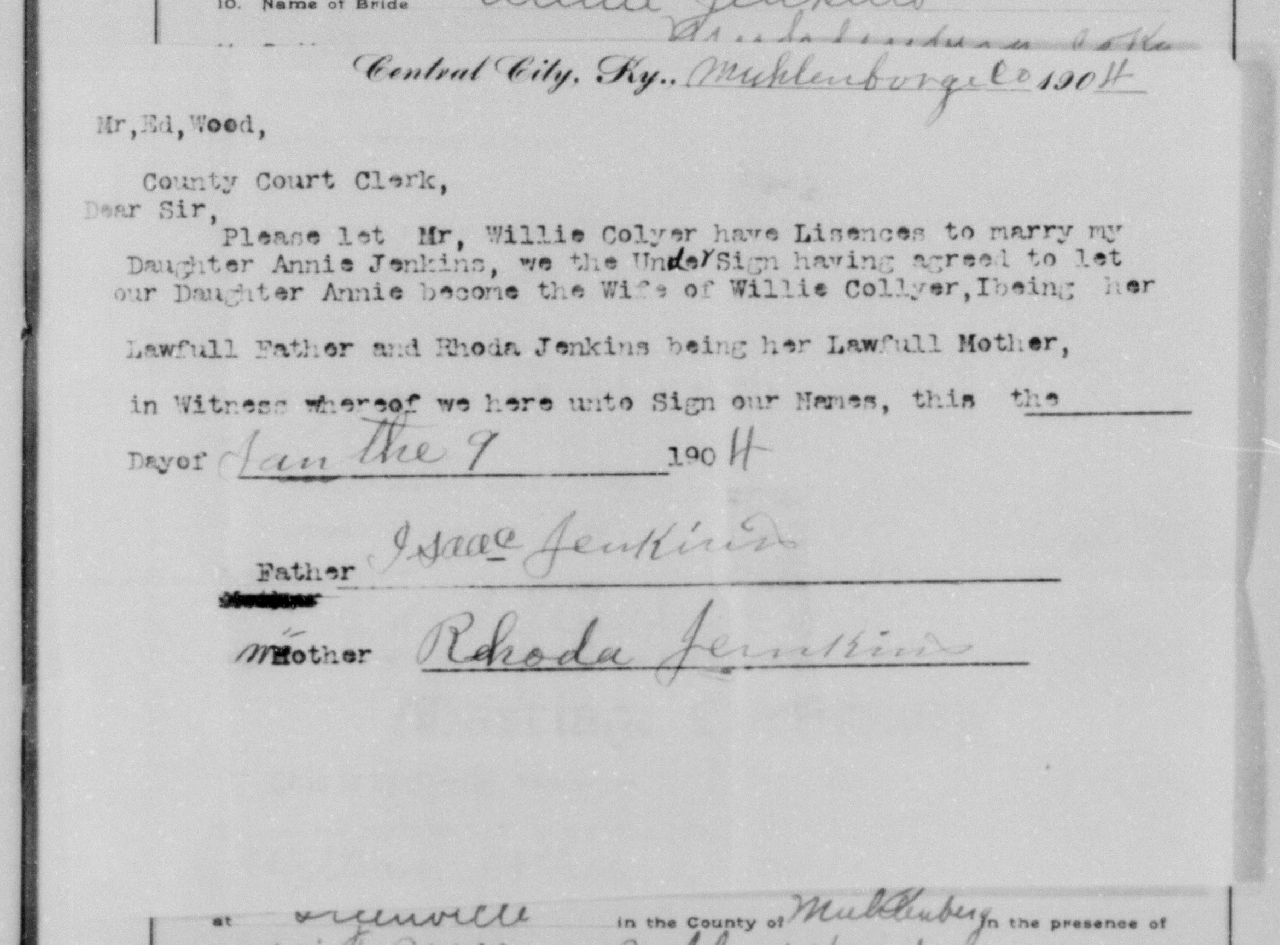 10. Name of Bride Annie Jenkins
Central City, Ky., Muhlenborge Co 1904
Mr,Ed,Wood,
County Court Clerk,
Dear Sir,
Please let Mr, Willie Colyer have Lisences to marry my
Daughter Annie Jenkins, we the UnderSign having agreed to let
our Daughter Annie become the Wife of Willie Collyer,Ibeing her
Lawfull Father and Rhoda Jenkins being her Lawfull Mother,
in Witness whereof we here unto Sign our Names, this the
Dayof Jan the 9 1904
Father Isaac Jenkins
Mother Rhoda Jenkins
at Greenville in the County of Muhlenberg in the presence of